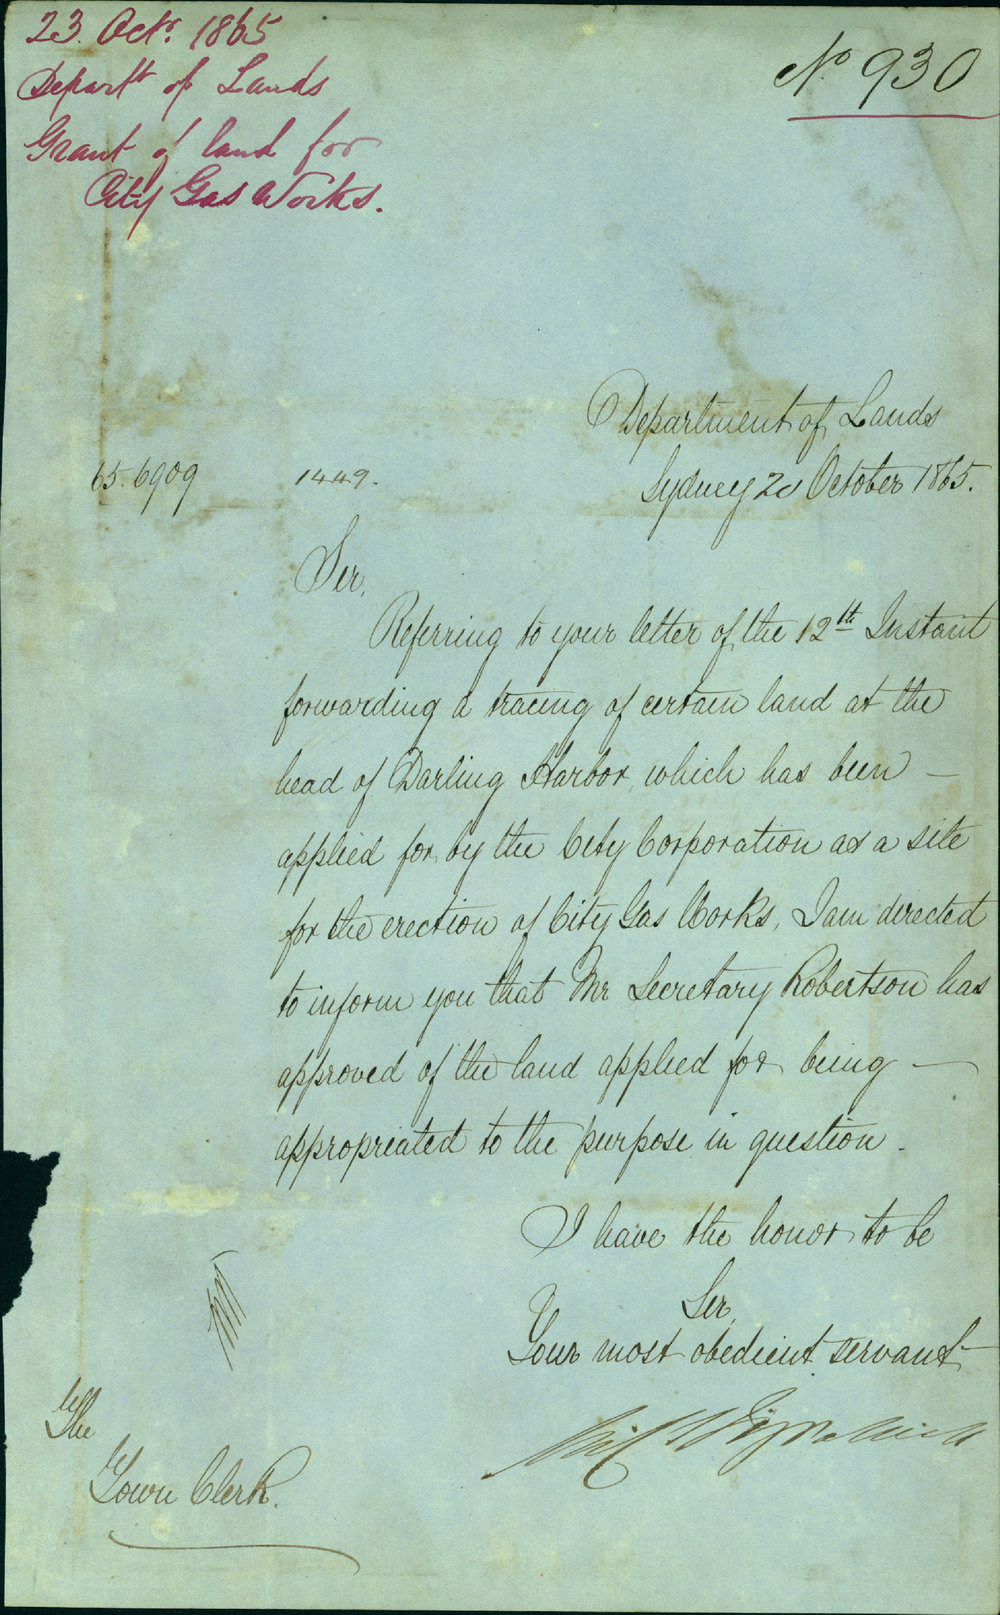 23. Octr. 1865
Departt of Lands
Grant of land for
City Gas Works.
No. 930
Department of Lands
Sydney 20 October 1865.
65.6909
1449.
Sir,
Referring to your letter of the 12th Instant
forwarding a tracing of certain land at the
head of Darling Harbor, which has been —
applied for by the City Corporation as a site
for the erection of City Gas Works, I am directed
to inform you that Mr Secretary Robertson has
approved of the land applied for being —
appropriated to the purpose in question.
I have the honor to be
Sir,
Your most obedient servant
The
Town Clerk.